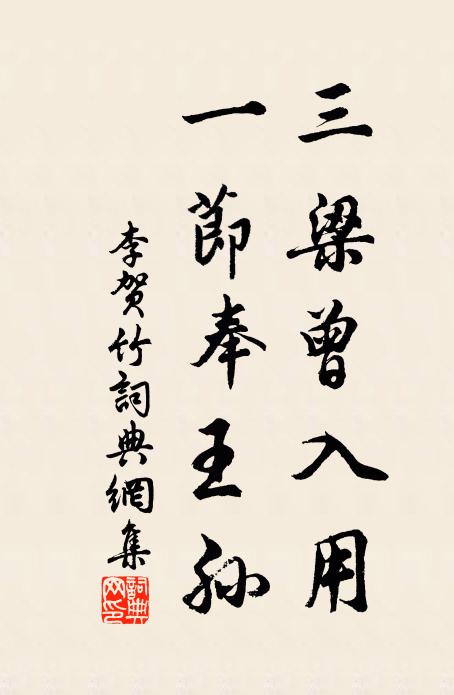 三梁曾入用
一節奉王孙
李贺竹詞典網集
詞典网印